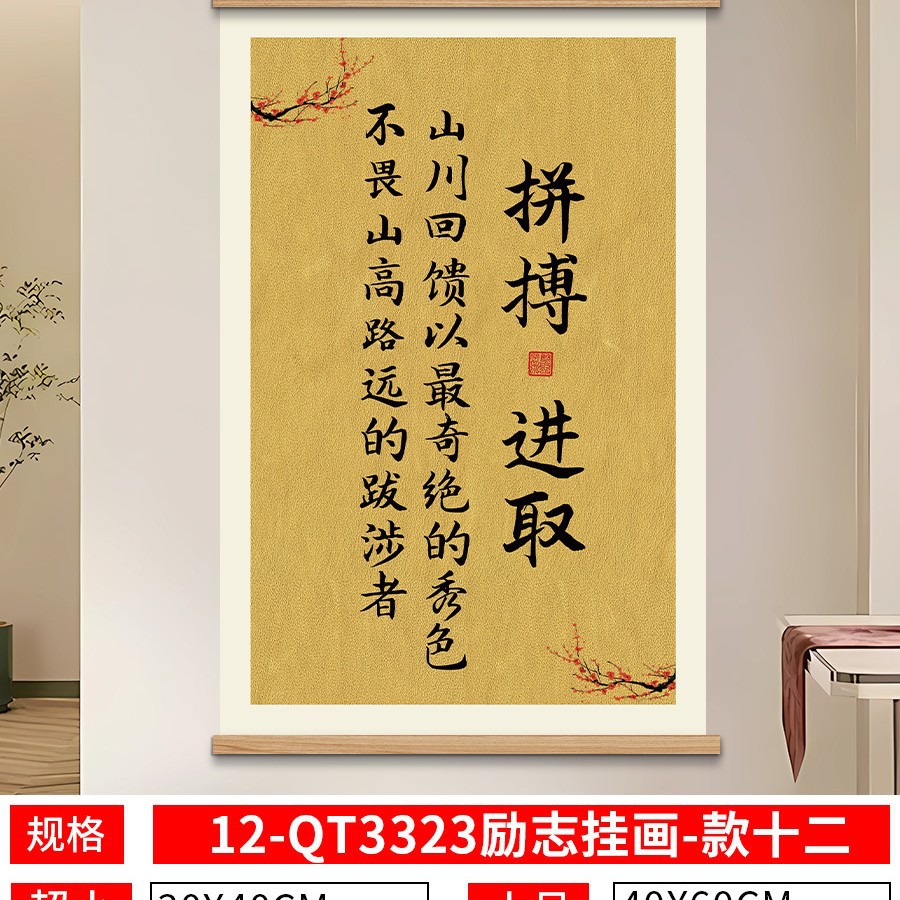 拼搏进取
山川回馈以最奇绝的秀色
不畏山高路远的跋涉者
规格
12-QT3323励志挂画-款十二